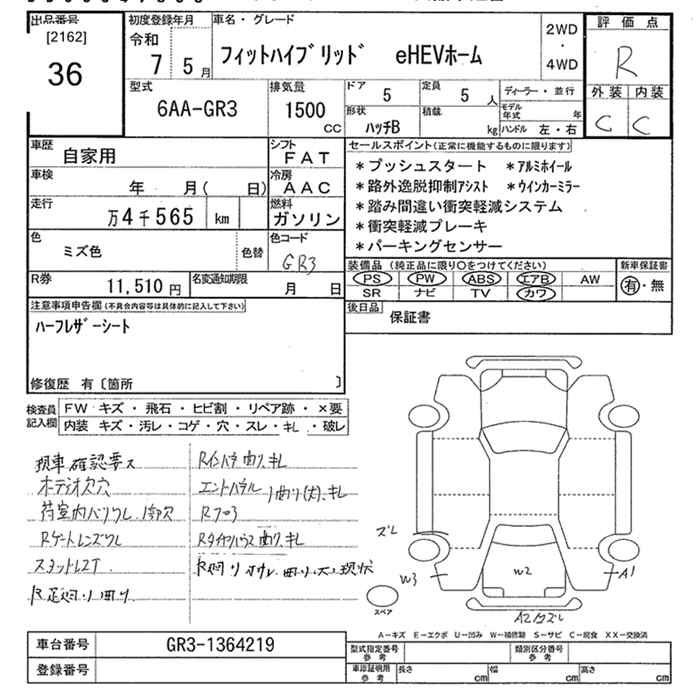 出品番号
[2162]
36
初度登録年月
令和
7 5月
車名・グレード
フィットハイブリッド eHEVホーム
2WD
・
4WD
評価点
R
外装 内装
C C
型式
6AA-GR3
排気量
1500
CC
ドア
5
定員
5 人
形状
ハッチB
積載
kg
ディーラー・並行
モデル年式 年
ハンドル 左・右
車歴
自家用
シフト
FAT
車検
年 月( 日)
冷房
AAC
走行
万4千565 km
燃料
ガソリン
色
ミズ色
色替
色コード
GR3
R券
11,510 円
名変通知期限
月 日
セールスポイント(正常に機能するものに限ります)
*プッシュスタート *アルミホイール
*路外逸脱抑制アシスト *ウインカーミラー
*踏み間違い衝突軽減システム
*衝突軽減ブレーキ
*パーキングセンサー
装備品 (純正品に限り○をつけてください)
PS PW ABS エアB AW
SR ナビ TV カワ
新車保証書
有・無
後日品
保証書
注意事項申告欄(不具合内容等は具体的に記入して下さい)
ハーフレザーシート
修復歴 有〔箇所 〕
検査員記入欄
FW キズ・飛石・ヒビ割・リペア跡・×要
内装 キズ・汚レ・コゲ・穴・スレ・キレ・破レ
現車確認要ス
オーディオ欠穴
荷室内バリワレ
Rゲートレンズワレ
Rインパネ曲り、キレ
エンドパネル 曲り(大)、キレ
Rフロア
Rタイヤハウス曲り、キレ
R足廻り曲り
ズレ
W3
W2
A1
スペア
A2 ズレ
A-キズ E-エクボ U-凹み W-補修跡 S-サビ C-腐食 XX-交換済
車台番号
GR3-1364219
登録番号
型式指定番号
参考
類別区分番号
参考
車庫証明用
参考
長さ cm
幅 cm
高さ cm